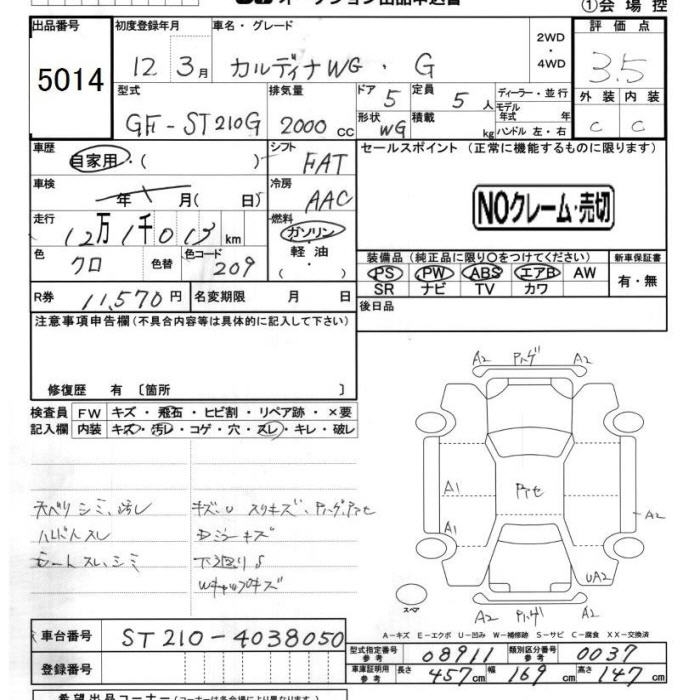 オークション出品申込書 ①会場控
出品番号 初度登録年月 車名・グレード 2WD・4WD 評価点
5014 12 3月 カルディナWG・G 3.5
型式 排気量 ドア 定員 ディーラー・並行 外装 内装
GF-ST210G 2000 cc 5 5人 モデル年式 年 C C
形状 積載 kg ハンドル 左・右
WG
車歴 シフト セールスポイント (正常に機能するものに限ります)
自家用・( ) FAT
車検 年 月( 日) 冷房 AAC NOクレーム・売切
走行 12万1千013km 燃料 ガソリン・軽油・( )
装備品(純正品に限り〇をつけてください) 新車保証書
色 クロ 色替 色コード 209 PS PW ABS エアB AW 有・無
SR ナビ TV カワ
R券 11,570円 名変期限 月 日 後日品
注意事項申告欄(不具合内容等は具体的に記入して下さい)
修復歴 有 〔箇所 〕
検査員 FW キズ・飛石・ヒビ割・リペア跡・×要
記入欄 内装 キズ・汚レ・コゲ・穴・スレ・キレ・破レ
A2 A2
A1
A1 A2
UA2
スペア
A2 A2
天ベリ シミ、汚レ
ハンドルスレ
シートスレ、シミ
下廻りS
Wキャップキズ
A-キズ E-エクボ U-凹み W-補修跡 S-サビ C-腐食 XX-交換済
車台番号 ST210-4038050
型式指定番号 参考 08911 類別区分番号 参考 0037
登録番号 車庫証明用 参考 長さ 457cm 幅 169cm 高さ 147cm
希望出品コーナー(コーナーは各会場により異なります)